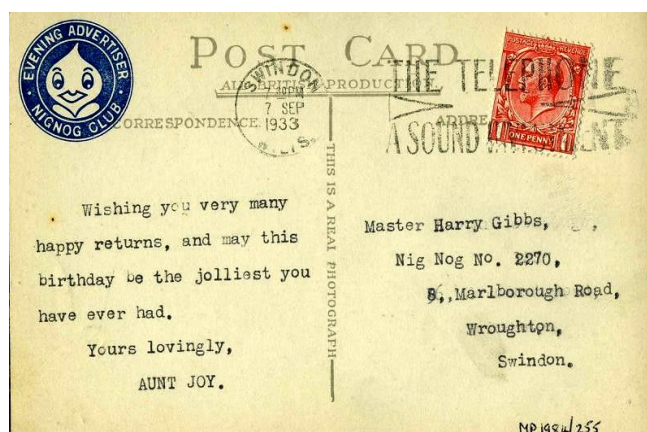 EVENING ADVERTISER
NIGNOG CLUB
POST CARD
ALL BRITISH PRODUCTION
SWINDON
7 SEP
1933
WILTS.
THE TELEPHONE
A SOUND INVESTMENT
POSTAGE REVENUE
ONE PENNY
CORRESPONDENCE.
ADDRE
THIS IS A REAL PHOTOGRAPH
Wishing you very many
happy returns, and may this
birthday be the jolliest you
have ever had.
Yours lovingly,
AUNT JOY.
Master Harry Gibbs,
Nig Nog No. 2270,
8,,Marlborough Road,
Wroughton,
Swindon.
MP1984/255